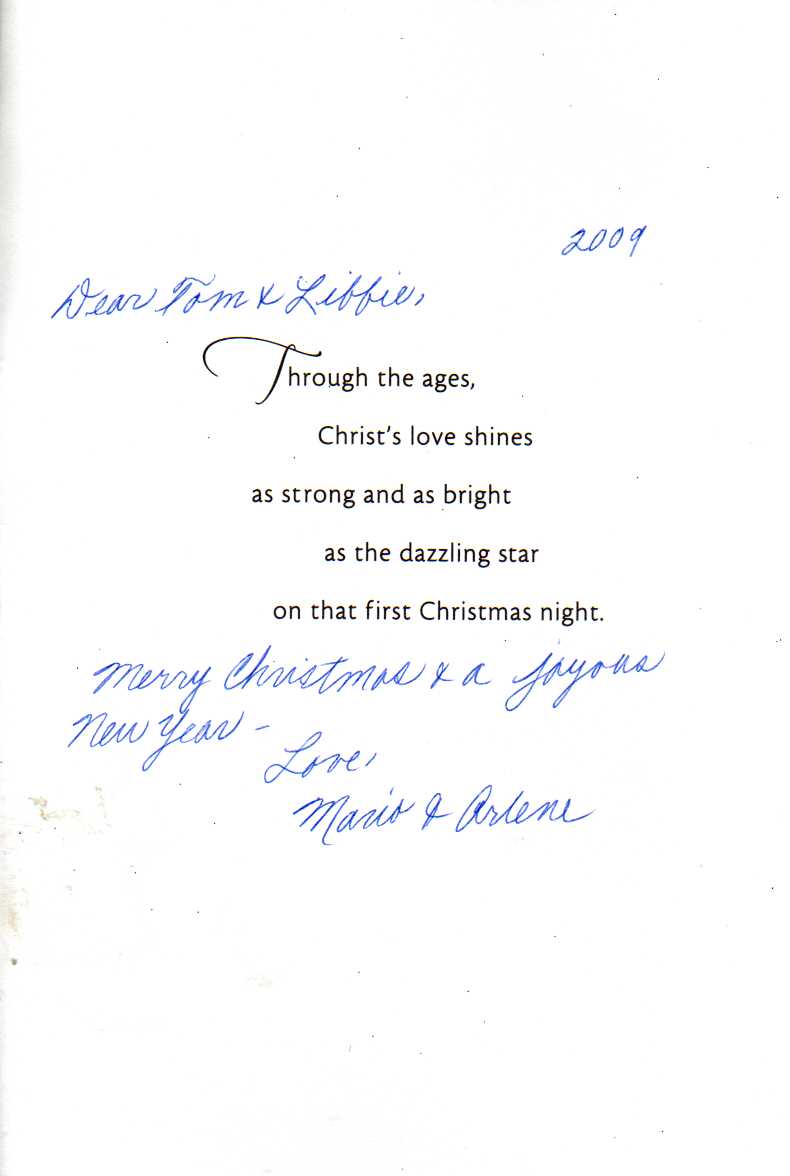 2009
Dear Tom & Libbie,
Through the ages,
Christ's love shines
as strong and as bright
as the dazzling star
on that first Christmas night.
Merry Christmas & a joyous
New Year –
Love,
Mario & Arlene